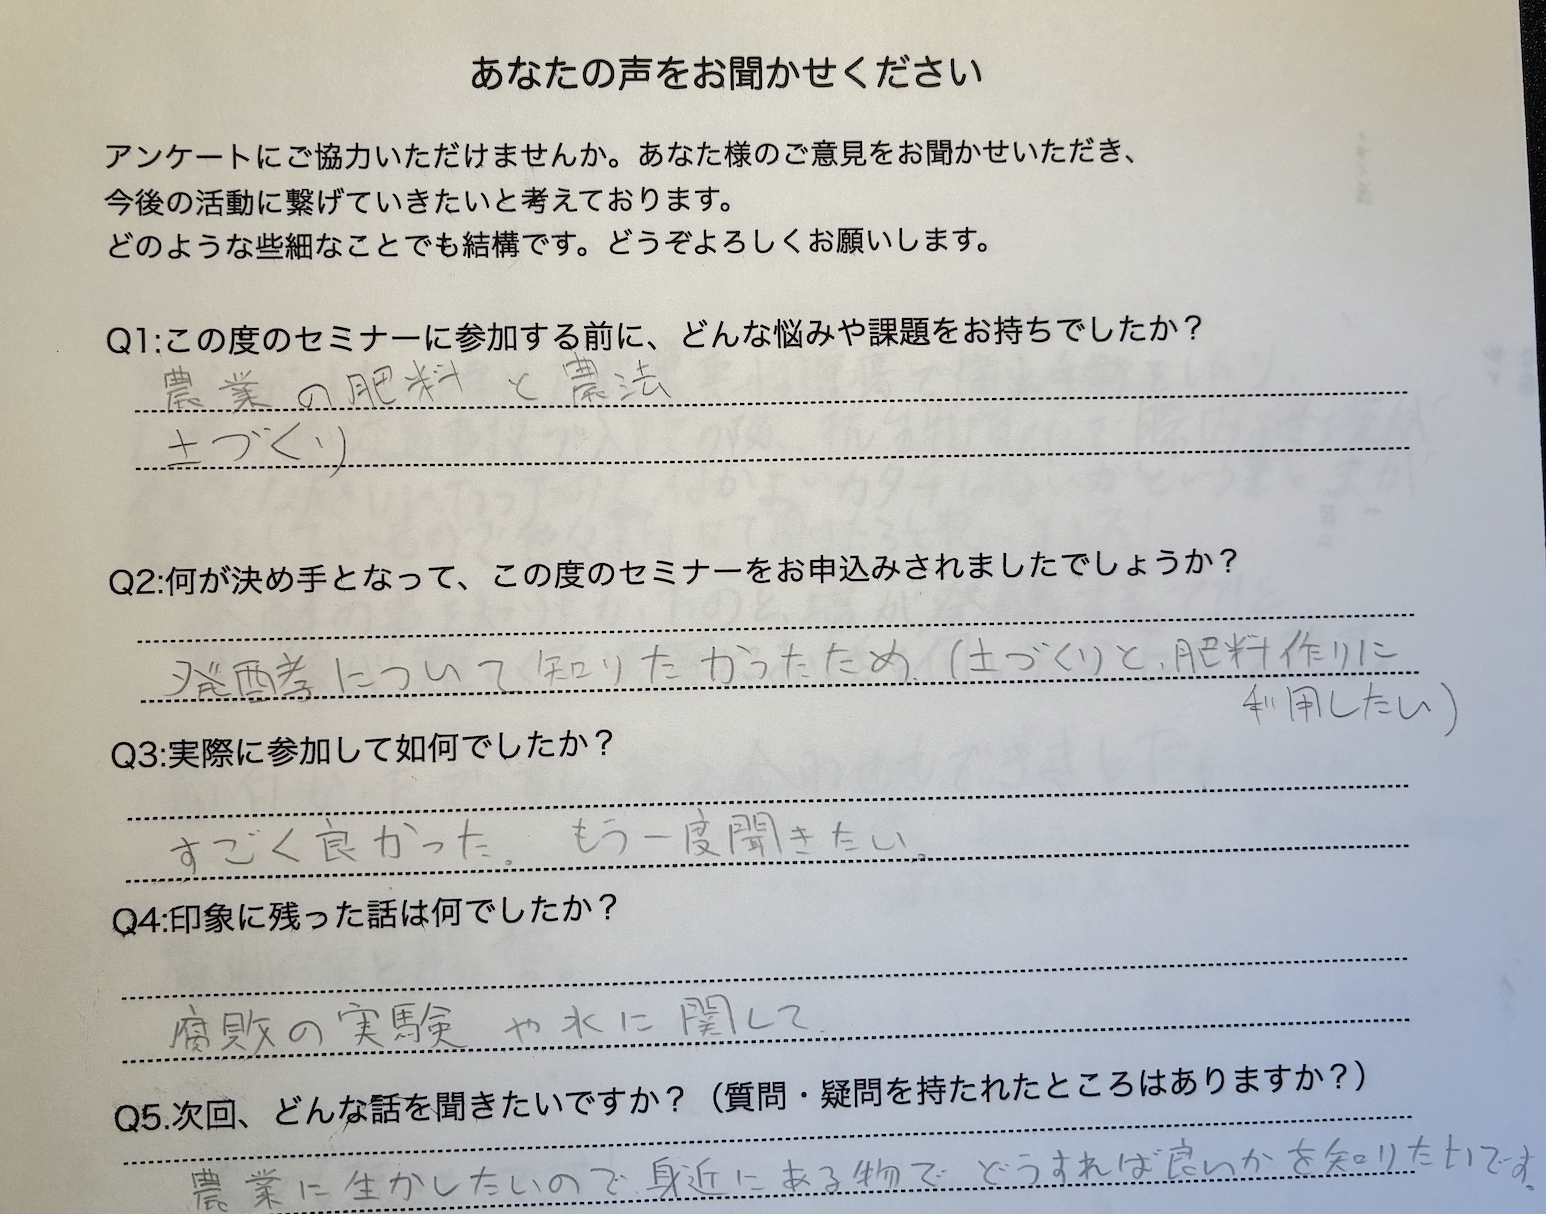 あなたの声をお聞かせください
アンケートにご協力いただけませんか。あなた様のご意見をお聞かせいただき、
今後の活動に繋げていきたいと考えております。
どのような些細なことでも結構です。どうぞよろしくお願いします。
Q1:この度のセミナーに参加する前に、どんな悩みや課題をお持ちでしたか？
農業の肥料と農法
土づくり
Q2:何が決め手となって、この度のセミナーをお申込みされましたでしょうか？
発酵について知りたかったため。（土づくりと、肥料作りに
利用したい）
Q3:実際に参加して如何でしたか？
すごく良かった。もう一度聞きたい。
Q4:印象に残った話は何でしたか？
腐敗の実験や水に関して。
Q5.次回、どんな話を聞きたいですか？（質問・疑問を持たれたところはありますか？）
農業に生かしたいので身近にある物でどうすれば良いかを知りたいです。